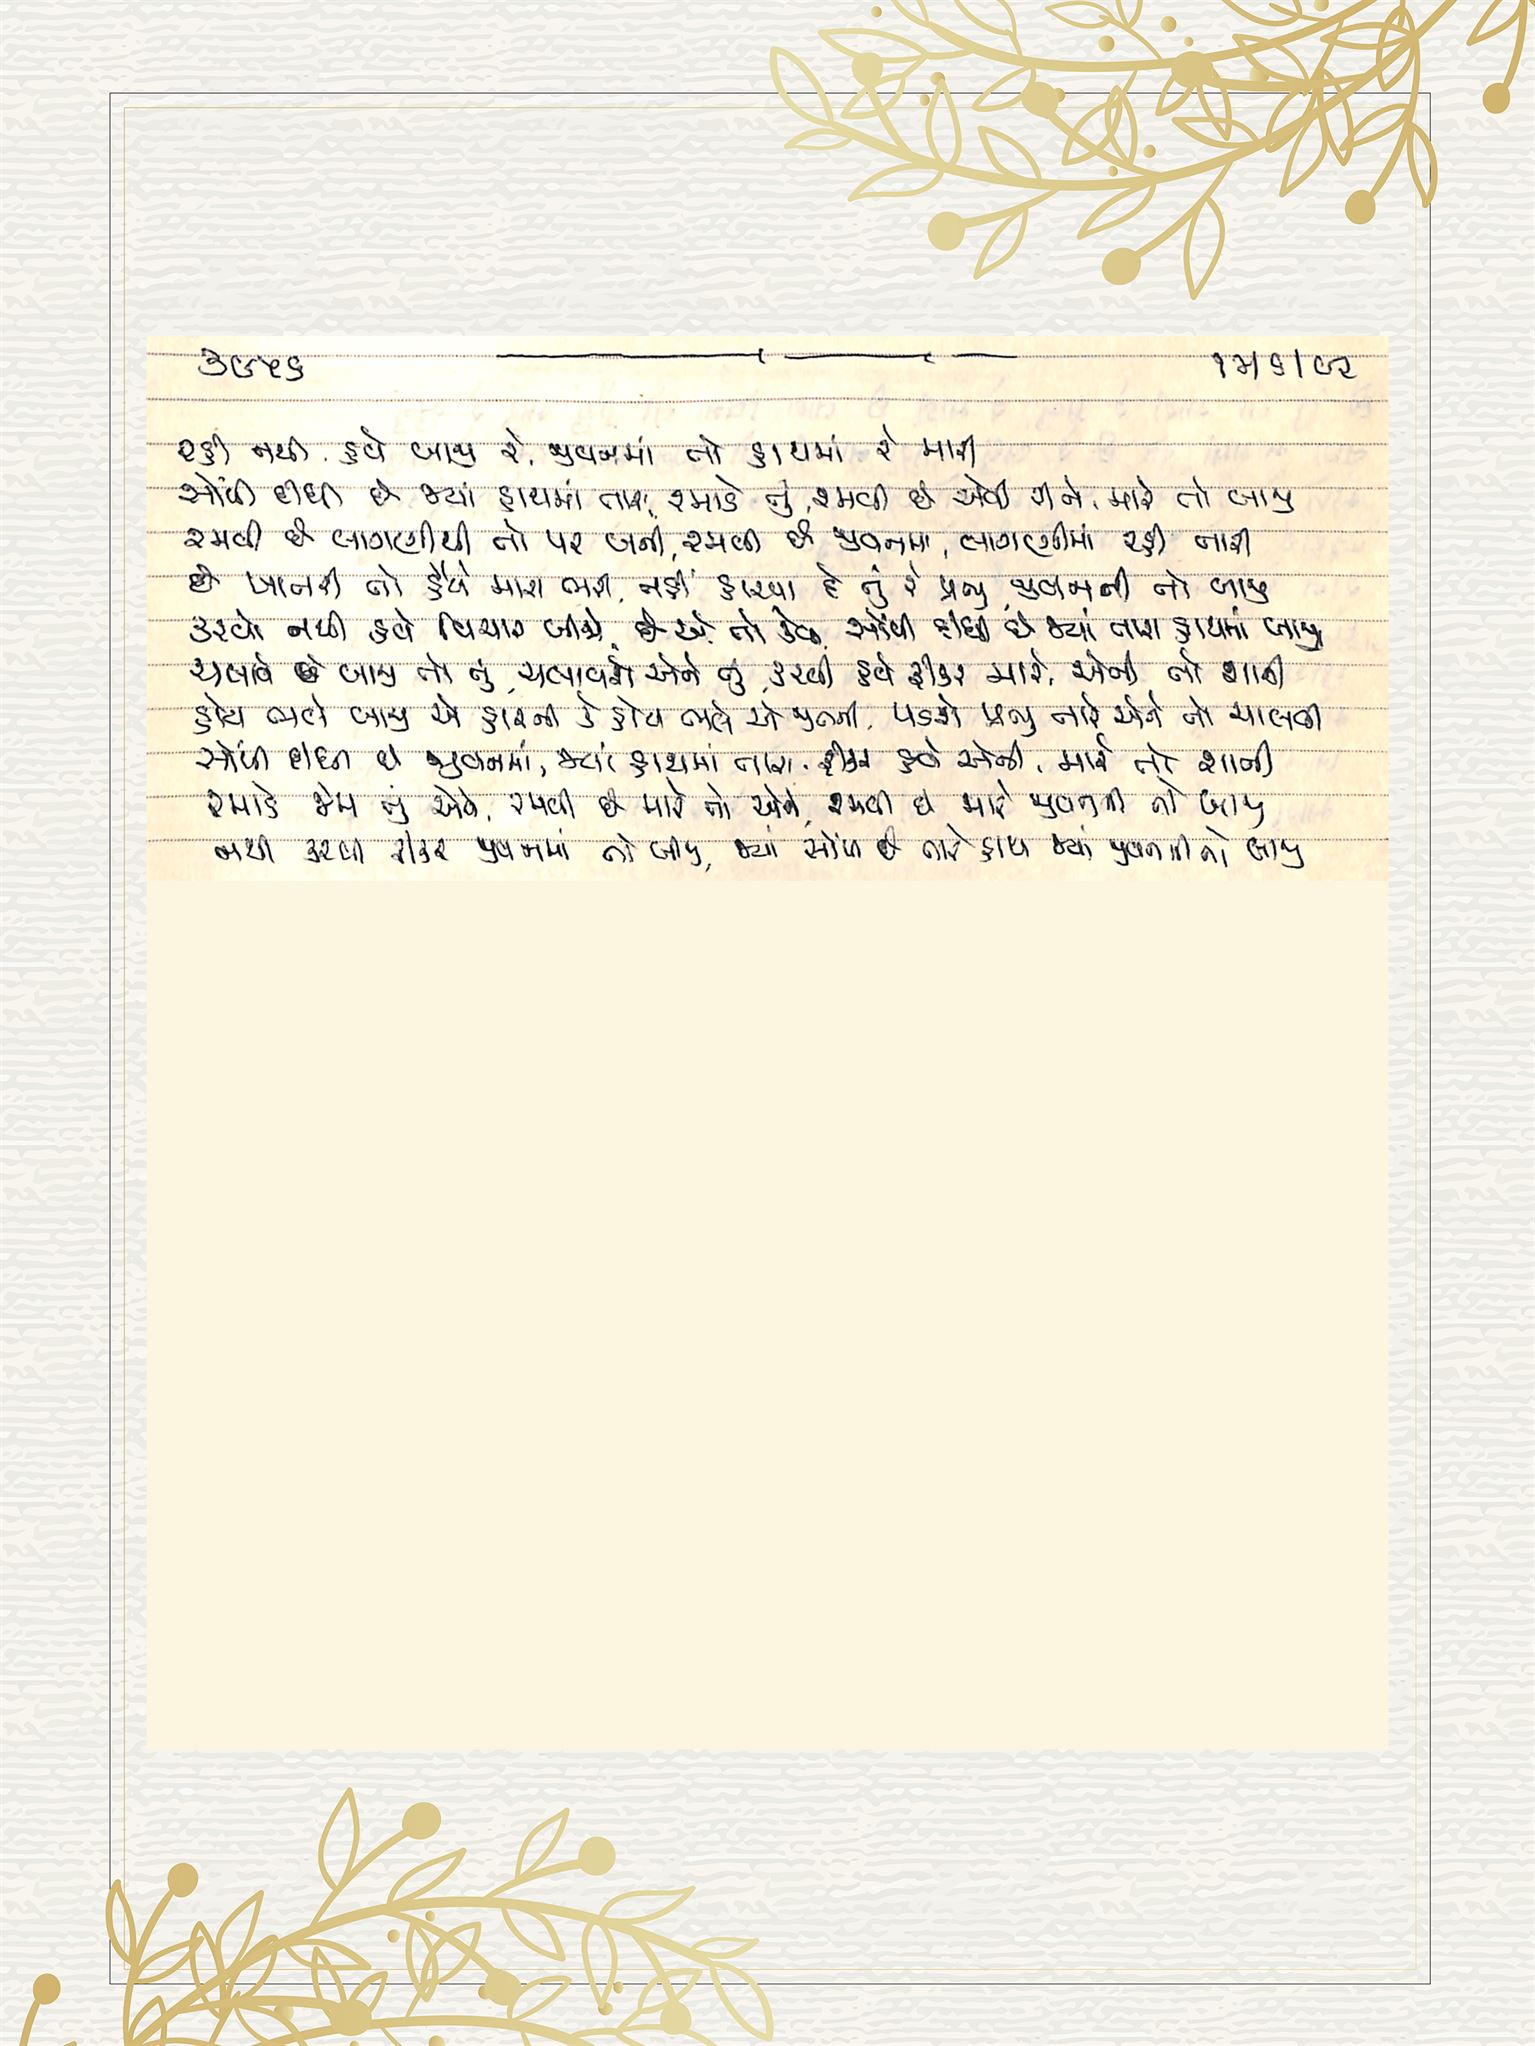 ૩૯૫૬ ૧૫/૬/૯૨
રહી નથી. હવે બાજી રે, જીવનમાં તો હાથમાં રે મારી
સોંપી દીધી છે જ્યાં હાથમાં તારા, રમાડે તું, રમવી છે એવી રીતે, મારે તો બાજી
રમવી છે લાગણીથી તો પર બની, રમવી છે જીવનમાં, લાગણીમાં રહી તારી
છે ખાતરી તો હૈયે મારા ભરી, નહીં હારવા દે તું રે પ્રભુ, જીવનની તો બાજી
કરવો નથી હવે વિચાર બીજો, છે એ તો દેવ, સોંપી દીધી છે જ્યાં તારા હાથમાં બાજી
ચલાવે છે બાજી તો તું, ચલાવશે એને તું, કરવી હવે ફીકર મારે, એની તો શાની
હોય ભલે બાજી એ હારની કે હોય ભલે એ જીતની, પડશે પ્રભુ તારે એને તો ચાલવી
સોંપી દીધી છે જીવનમાં, જ્યાં હાથમાં તારા. ફીકર હવે એની, મારે તો શાની
રમાડે જેમ તું એને, રમવી છે મારે તો એને, રમવી છે મારે જીવનની તો બાજી
નથી કરવી ફીકર જીવનમાં તો બીજી, જ્યાં સોંપી છે તારે હાથ જ્યાં જીવનની તો બાજી